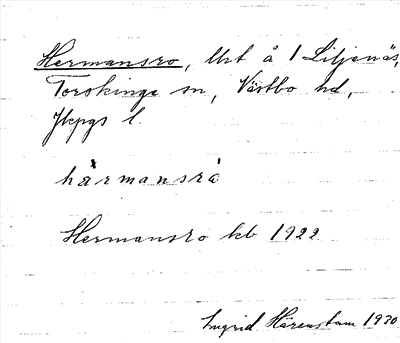 Hermansro, Urt å 1 Liljenäs,
Torskinge sn, Västbo hd,
Jkpgs l.
hæ̀rmansrá
Hermansro kb 1922
Ingrid Härenstam 1930